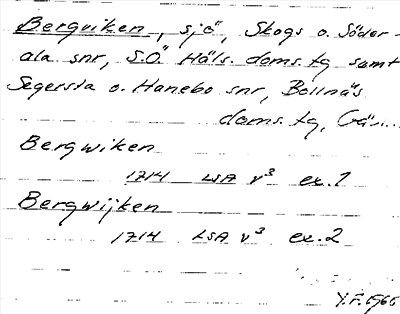 Bergviken, sjö, Skogs o. Söder-
ala snr, S.Ö. Häls. doms.tg samt
Segersta o. Hanebo snr, Bollnäs
doms.tg, Gäv...
Bergwiken
1714 LSA v³ ex.1
Bergwijken
1714 LSA v³ ex.2
Y.F. 1965